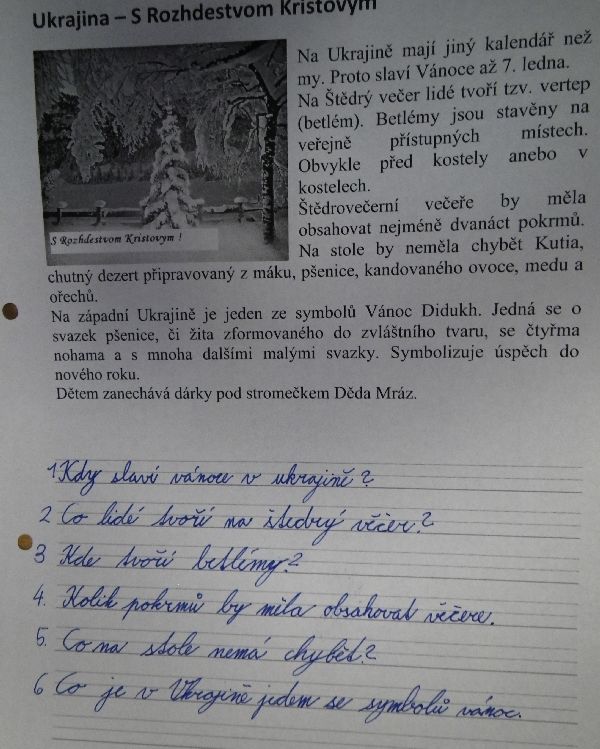 Ukrajina – S Rozhdestvom Kristovym
Na Ukrajině mají jiný kalendář než
my. Proto slaví Vánoce až 7. ledna.
Na Štědrý večer lidé tvoří tzv. vertep
(betlém). Betlémy jsou stavěny na
veřejně přístupných místech.
Obvykle před kostely anebo v
kostelech.
Štědrovečerní večeře by měla
obsahovat nejméně dvanáct pokrmů.
Na stole by neměla chybět Kutia,
S Rozhdestvom Kristovym !
chutný dezert připravovaný z máku, pšenice, kandovaného ovoce, medu a
ořechů.
Na západní Ukrajině je jeden ze symbolů Vánoc Didukh. Jedná se o
svazek pšenice, či žita zformovaného do zvláštního tvaru, se čtyřma
nohama a s mnoha dalšími malými svazky. Symbolizuje úspěch do
nového roku.
Dětem zanechává dárky pod stromečkem Děda Mráz.
1 Kdy slaví vánoce v ukrajině?
2 Co lidé tvoří na štedrý věčer?
3 Kde tvoří betlémy?
4. Kolik pokrmů by měla obsahovat věčere.
5. Co na stole nemá chybět?
6 Co je v Ukrajině jedem se symbolů vánoc.